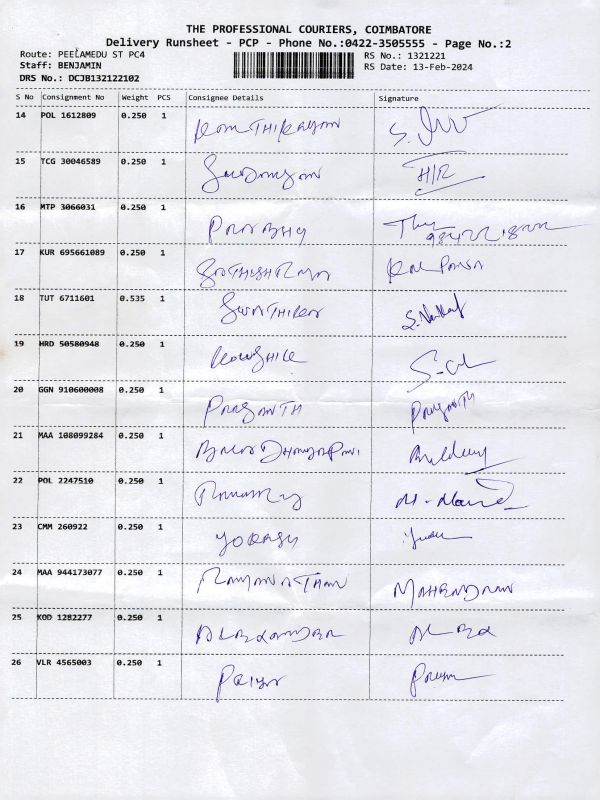 THE PROFESSIONAL COURIERS, COIMBATORE
Delivery Runsheet - PCP - Phone No.:0422-3505555 - Page No.:2
Route: PEELAMEDU ST PC4 RS No.: 1321221
Staff: BENJAMIN RS Date: 13-Feb-2024
DRS No.: DCJB132122102
S No Consignment No Weight PCS Consignee Details Signature
14 POL 1612809 0.250 1
15 TCG 30046589 0.250 1 H/R
16 MTP 3066031 0.250 1 PRABHU
17 KUR 695661089 0.250 1 KALPANA
18 TUT 6711601 0.535 1
19 HRD 50580948 0.250 1 KOWSHIK
20 GGN 910600008 0.250 1 PRASANTH
21 MAA 108099284 0.250 1 BALADHANDAPANI
22 POL 2247510 0.250 1
23 CMM 260922 0.250 1 YOKESH
24 MAA 944173077 0.250 1 RAMANATHAN MAHENDRAN
25 KOD 1282277 0.250 1 ALEXANDER
26 VLR 4565003 0.250 1 PRIYA